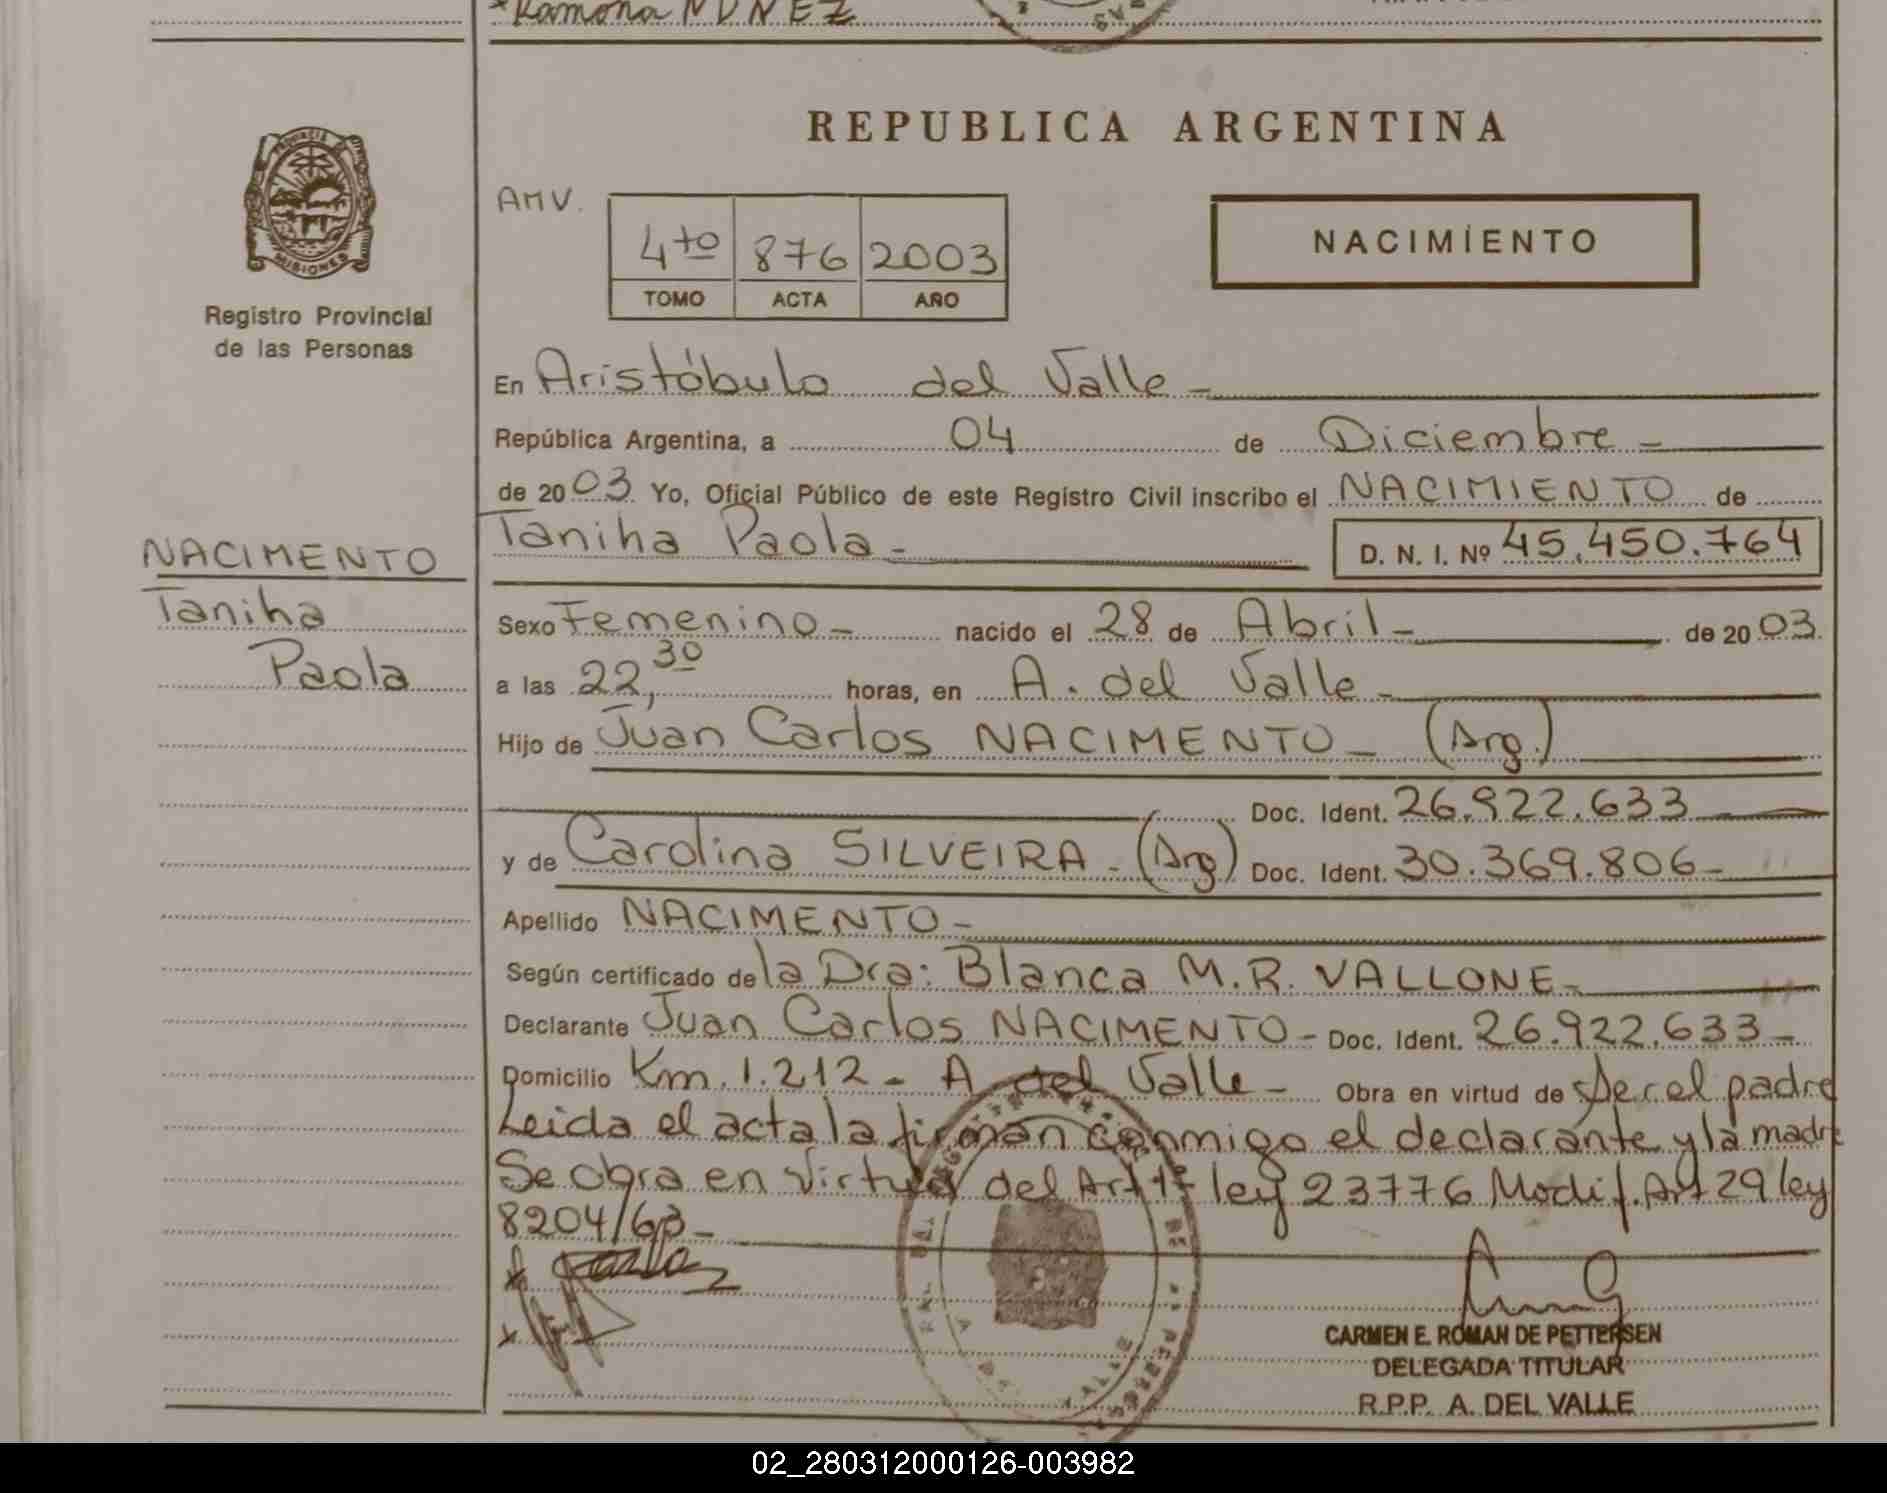 Ramona NUÑEZ
REPUBLICA ARGENTINA
PROVINCIA DE
MISIONES
Registro Provincial
de las Personas
AMV.
4to 876 2003
TOMO ACTA AÑO
NACIMIENTO
En Aristóbulo del Valle -
República Argentina, a 04 de Diciembre -
de 2003 Yo, Oficial Público de este Registro Civil inscribo el NACIMIENTO de
Taniha Paola -
D. N. I. Nº 45.450.764
NACIMENTO
Taniha
Paola
Sexo Femenino - nacido el 28 de Abril - de 2003.
a las 22,30 horas, en A. del Valle -
Hijo de Juan Carlos NACIMENTO - (Arg.)
Doc. Ident. 26.922.633
y de Carolina SILVEIRA - (Arg) Doc. Ident. 30.369.806 -
Apellido NACIMENTO -
Según certificado de la Dra: Blanca M.R. VALLONE -
Declarante Juan Carlos NACIMENTO - Doc. Ident. 26.922.633 -
Domicilio Km. 1.212 - A del Valle - Obra en virtud de ser el padre
Leida el acta la firman conmigo el declarante y la madre
Se obra en virtud del Art 1º ley 23776 Modif. Art 29 ley
8204/63 -
CARMEN E. ROMAN DE PETTERSEN
DELEGADA TITULAR
R.P.P. A. DEL VALLE
02_280312000126-003982